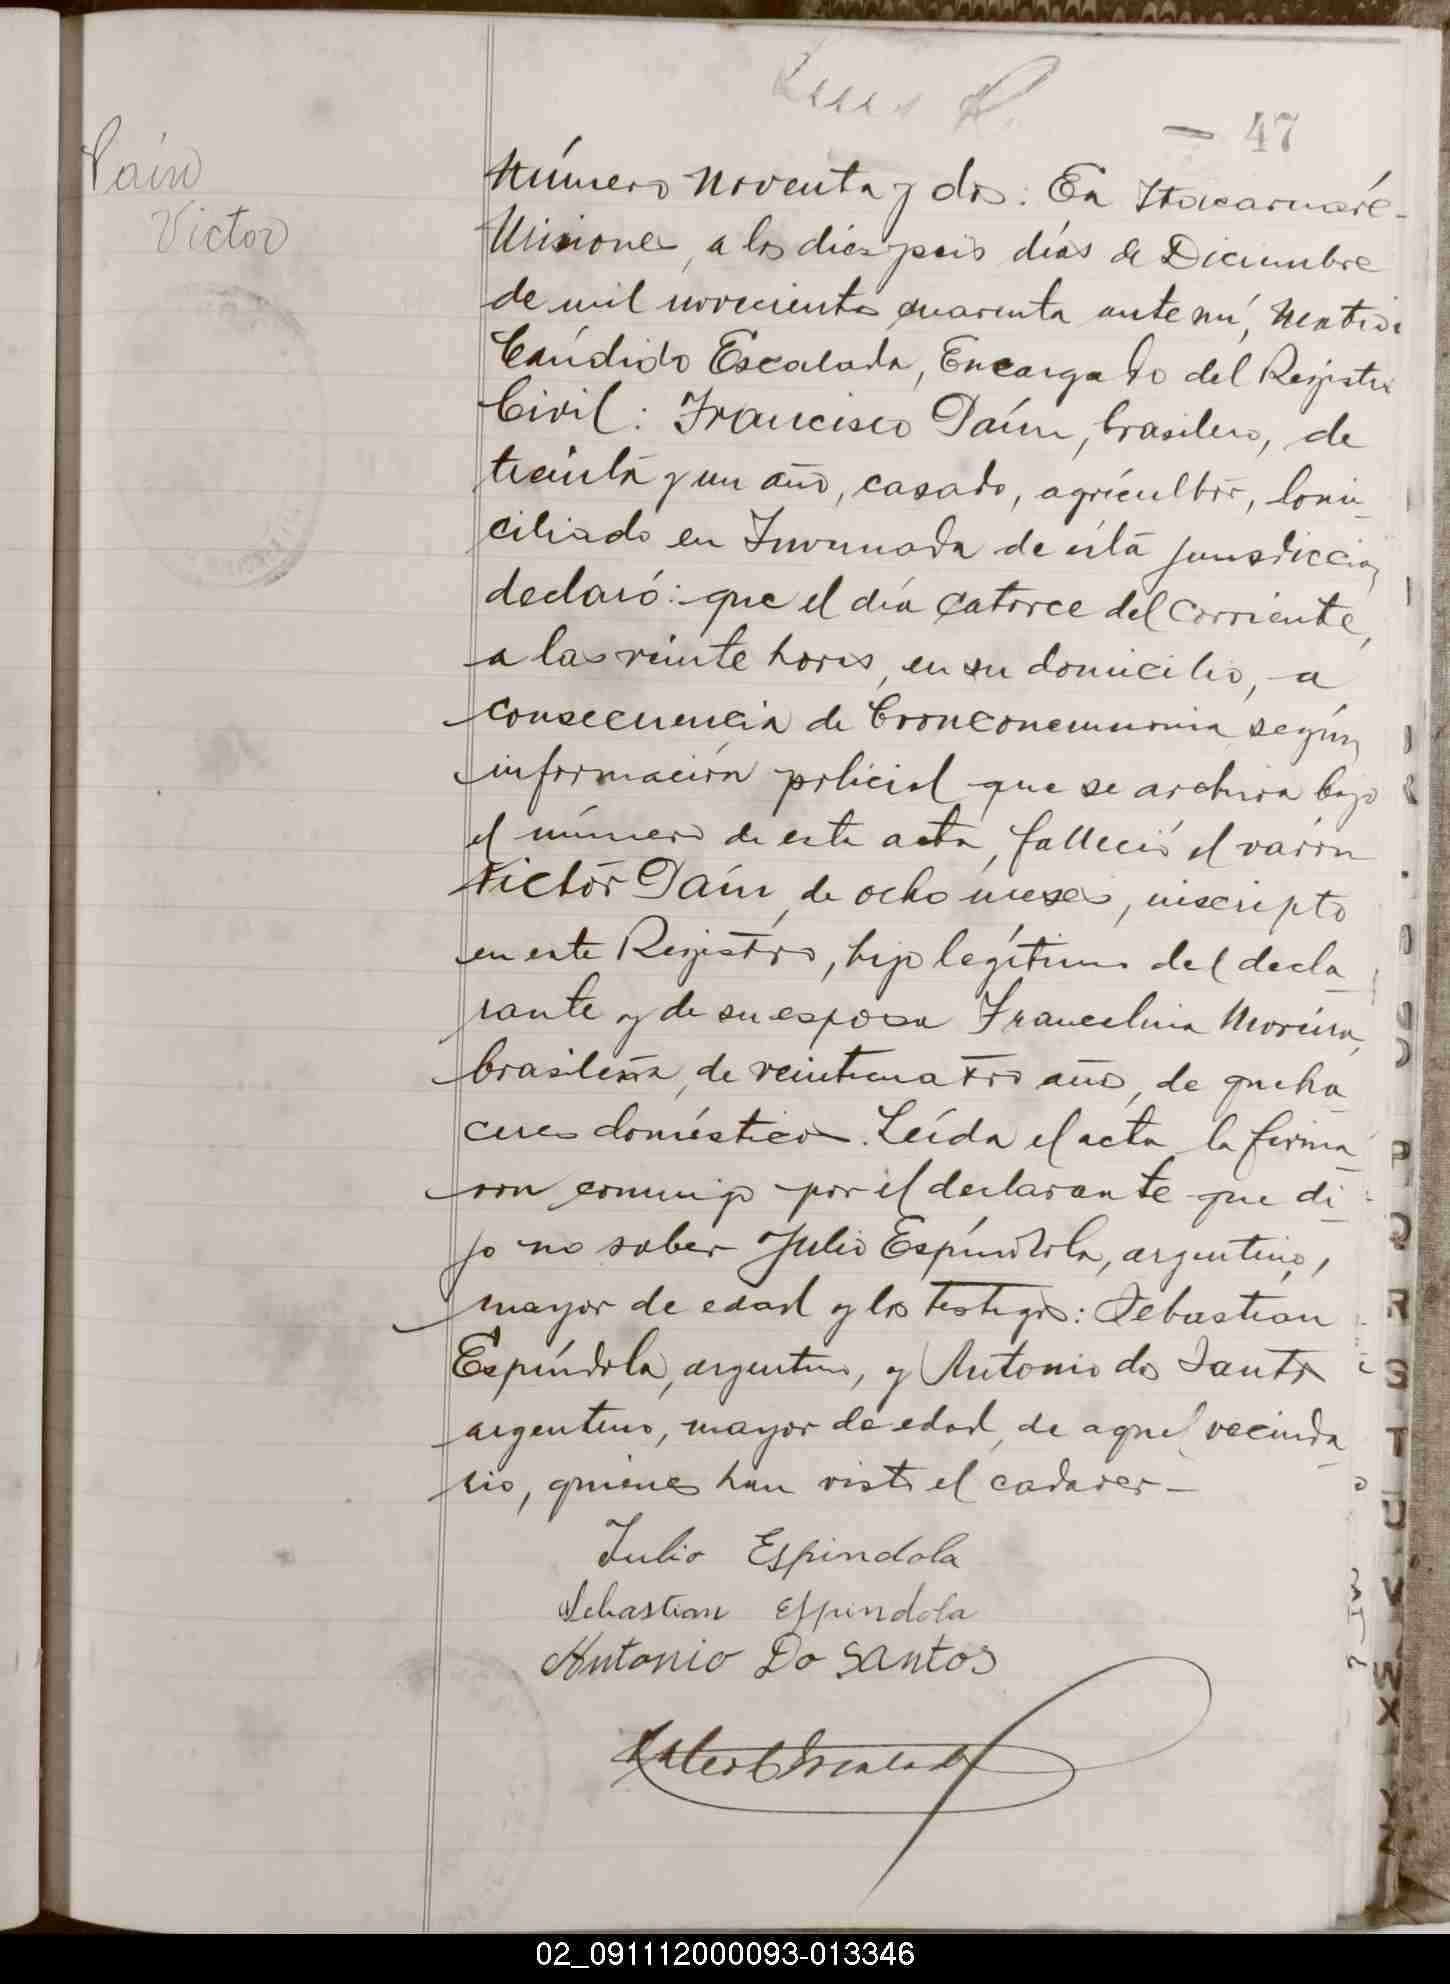 47
Paín
Victor
Número noventa y dos: En Itacaruaré-
Misiones, a los diez y seis días de Diciembre
de mil novecientos cuarenta ante mí,
Cándido Escalada, Encargado del Registro
Civil: Francisco Paín, brasilero, de
treinta y un año, casado, agricultor, domi-
ciliado en Invernada de ésta jurisdicción
declaró: que el día catorce del corriente,
a las veinte horas, en su domicilio, a
consecuencia de bronconeumonia según
información policial que se archiva bajo
el número de esta acta, falleció el varón
Victor Paín, de ocho meses, inscripto
en este Registro, hijo legítimo del decla-
rante y de su esposa Francelina Moreira,
brasileña, de veinticuatro años, de queha-
ceres domésticos. Leída el acta la firma-
ron conmigo por el declarante que di-
jo no saber Julio Espíndola, argentino,
mayor de edad y los testigos: Sebastian
Espíndola, argentino, y Antonio do Santos
argentino, mayor de edad, de aquel vecinda-
rio, quienes han visto el cadaver-
Julio Espindola
Sebastian Espindola
Antonio Do Santos
02_091112000093-013346